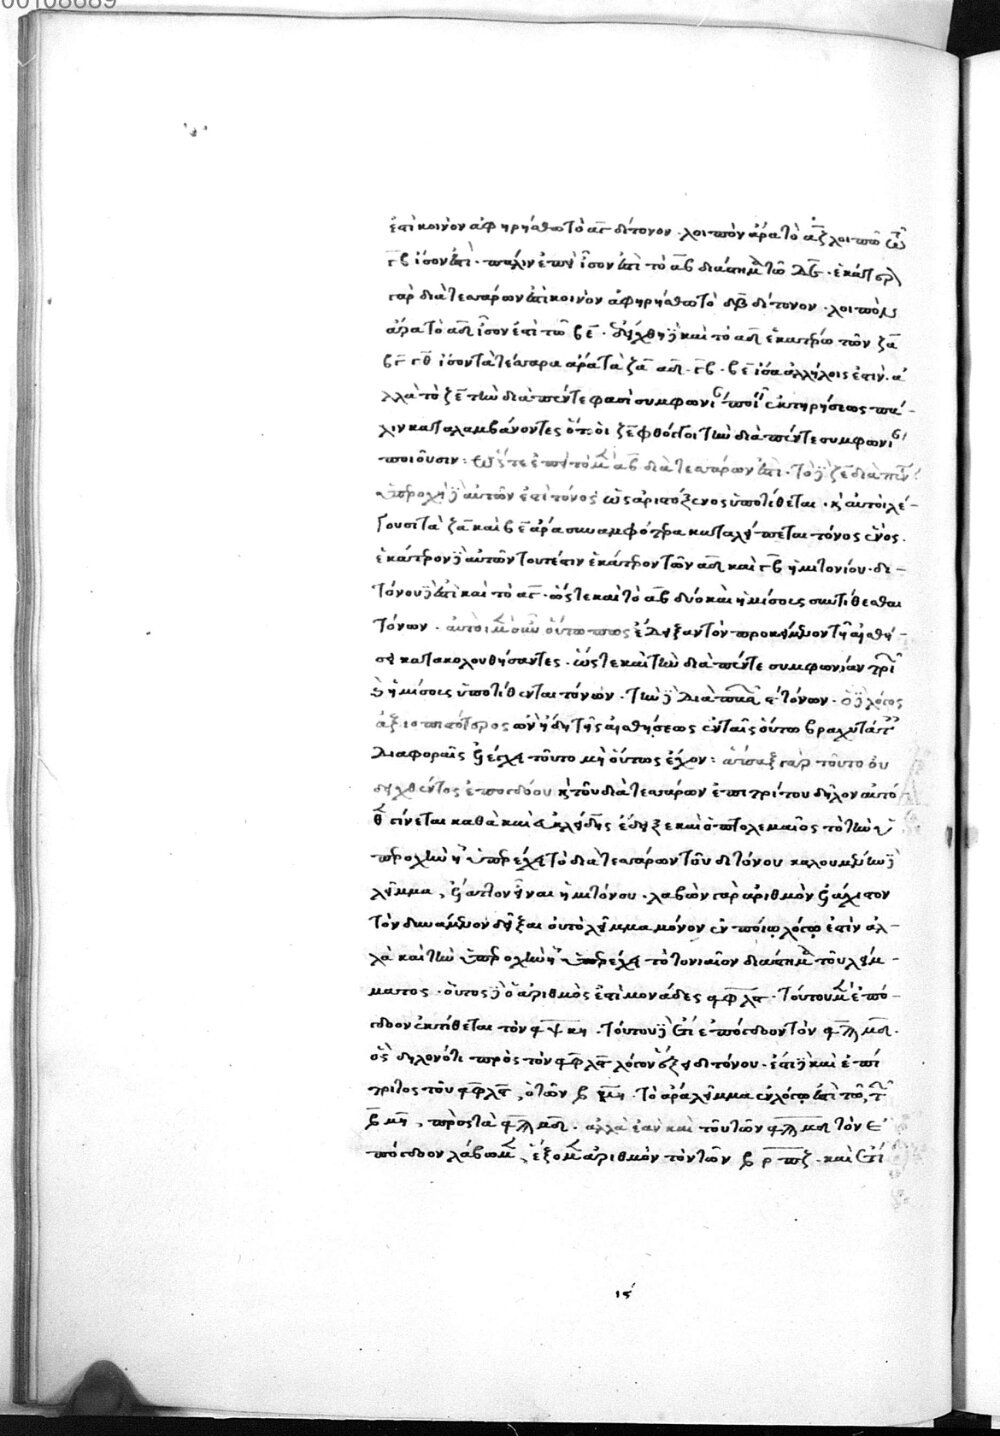 00108689
ἐστὶ κοινὸν ἀφῃρήσθω τὸ αγ δίτονον · λοιπὸν ἄρα τὸ αζ λοιπῶ τῶ
γβ ἴσον ἐστὶ · πάλιν ἐπεὶ ἴσον ἐστὶ τὸ αβ διάστημα τῶ
γὰρ διὰ τεσσάρων ἐστὶ κοινὸν ἀφῃρήσθω τὸ δβ δίτονον · λοιπὸν
ἄρα τὸ αδ ἴσον ἐστὶ τῶ βε · ἐδείχθη δὲ καὶ τὸ αδ ἑκατέρω τῶν ζα
βγ ἴσον τὰ τέσσαρα ἄρα τὰ ζα αδ · γβ · βε ἴσα ἀλλήλοις ἐστίν · ἀ
λλὰ τὸ ζε τὴν διὰ πέντε φασὶ συμφωνίαν ποιεῖν ἐκ τηρήσεως πά-
λιν καταλαμβάνοντες ὅτι οἱ ζε φθόγγοι τὴν διὰ πέντε συμφωνίαν
ποιοῦσιν : ὥστε ἐπεὶ τὸ μὲν αβ διὰ τεσσάρων ἐστὶ · τὸ δὲ ζε διὰ πέντε
ὑπεροχὴ δὲ αὐτῶν ἐστὶ τόνος ὡς ἀριστόξενος ὑποτίθεται · κ αὐτοὶ λέ-
γουσι τὰ ζα καὶ βε ἄρα συναμφότερα καταλείπεται τόνος ἑνὸς ·
ἑκάτερον δὲ αὐτῶν τουτέστιν ἑκάτερον τῶν αδ καὶ γβ ἡμιτονίου · δι-
τόνου δὲ ἐστὶ καὶ τὸ αγ · ὥστε καὶ τὸ αβ δύο καὶ ἡμίσους συντίθεσθαι
τόνων · αὐτοὶ μὲν οὖν οὕτω πως ἔδειξαν τὸν προκείμενον τῆ αἰσθή-
σει κατακολουθήσαντες · ὥστε καὶ τὴν διὰ πέντε συμφωνίαν τριῶν
ἡμίσους ὑποτίθενται τόνων · τὴν δὲ διὰ πασῶν ϛ τόνων · ὁ δὲ λόγος
ἀξιοπιστότερος ὢν ἤδη τῆς αἰσθήσεως ἐν ταῖς οὕτω βραχυτάταις
διαφοραῖς ἐλέγχει τοῦτο μὴ οὕτως ἔχον : ἅπαξ γὰρ τοῦτο ου
δειχθέντος ἐπογδόου κ τοῦ διὰ τεσσάρων ἐπιτρίτου δῆλον αὐτό
θεν γίνεται καθὰ καὶ εὐκλείδης ἔδειξε καὶ ὁ πτολεμαῖος τὸ τὴν ὑ
περοχὴν ἣ ὑπερέχει τὸ διὰ τεσσάρων τοῦ διτόνου καλουμένην δὲ
λεῖμμα , ἔλαττον εἶναι ἡμιτόνου · λαβὼν γὰρ ἀριθμὸν ἐλάχιστον
τὸν δυνάμενον δεῖξαι οὐ τὸ λεῖμμα μόνον ἐν ποίῳ λόγῳ ἐστὶν ἀλ-
λὰ καὶ τὴν ὑπεροχὴν ἣ ὑπερέχει τὸ τονιαῖον διάστημα τοῦ λείμ-
ματος · οὗτος δὲ ὁ ἀριθμὸς ἐστὶ μονάδες ͵αφλϛ · τούτου μὲν ἐπό-
γδοον ἐκτίθεται τὸν ͵αψκη · τούτου δὲ ἔτι ἐπόγδοον τὸν ͵αϡμδ ·
ὃς δηλονότι πρὸς τὸν ͵αφλϛ λόγον ἕξει διτόνου · ἔστι δὲ καὶ ἐπί
τριτος τοῦ ͵αφλϛ , ὁ τῶν ͵βμη · τὸ ἄρα λεῖμμα ἐν λόγῳ ἐστὶ τῶ τῶν
͵βμη , πρὸς τὰ ͵αϡμδ · ἀλλὰ ἐὰν καὶ τοῦ τῶν ͵αϡμδ τὸν ἐ
πόγδοον λάβωμεν , ἕξομεν ἀριθμὸν τὸν τῶν ͵βρπζ · καὶ ἔστι
ιϛ